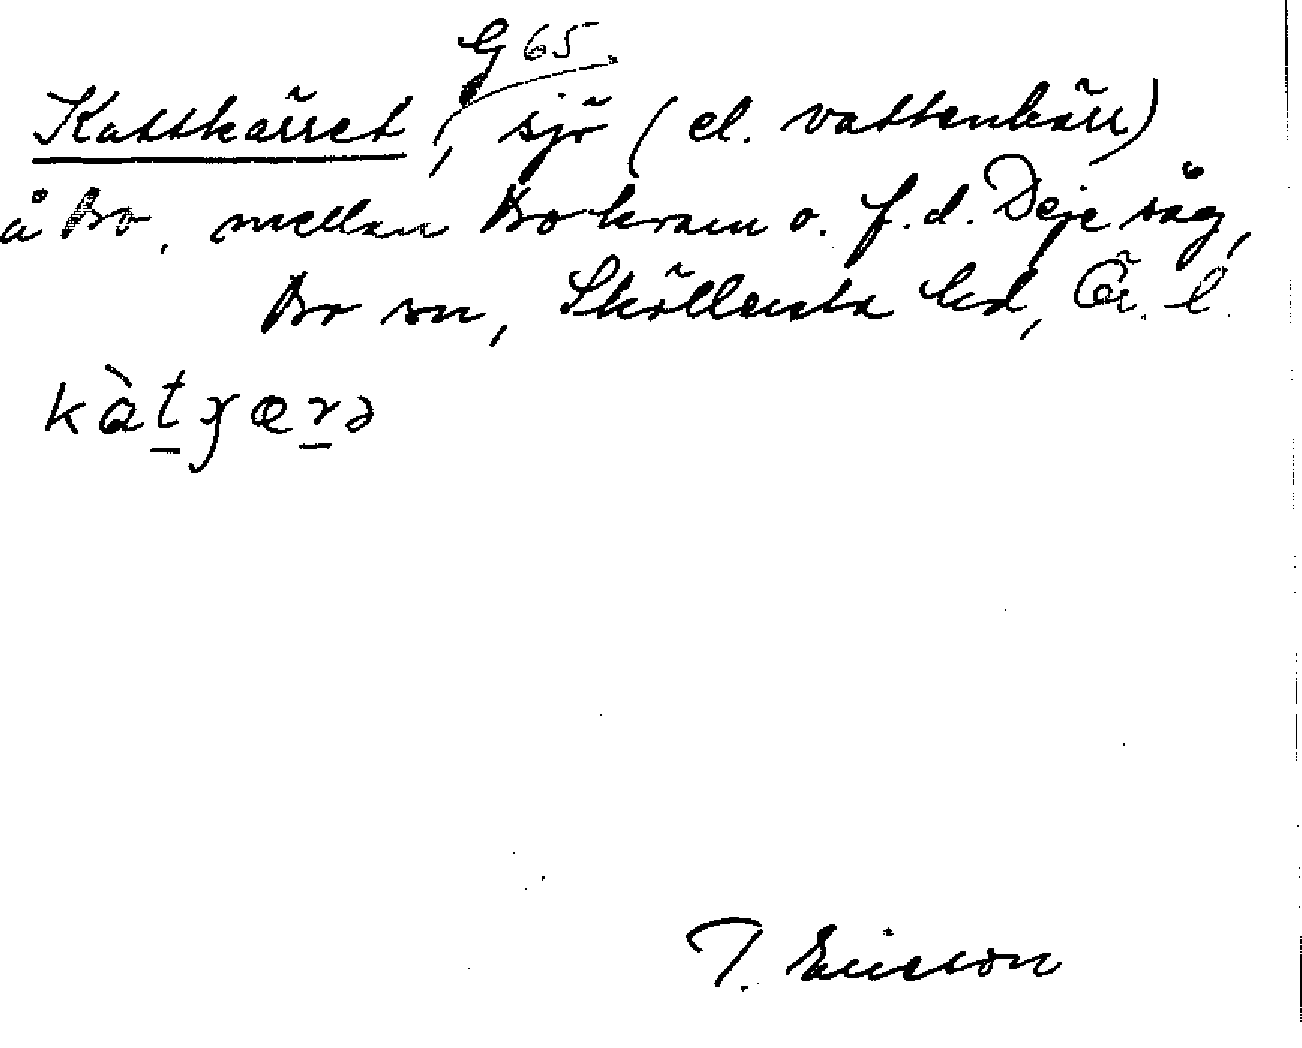 G 65.
Kattkärret, sjö (el. vattenkärr)
å Bo, mellan Bo kvarn o. f.d. Deje såg,
Bo sn, Sköllersta hd, Ör. l.
kàt̲ɣær̲ə
T. Ericsson